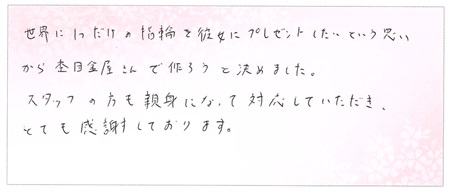 世界に1つだけの指輪を彼女にプレゼントしたいという思い
から杢目金屋さんで作ろうと決めました。
スタッフの方も親身になって対応していただき、
とても感謝しております。